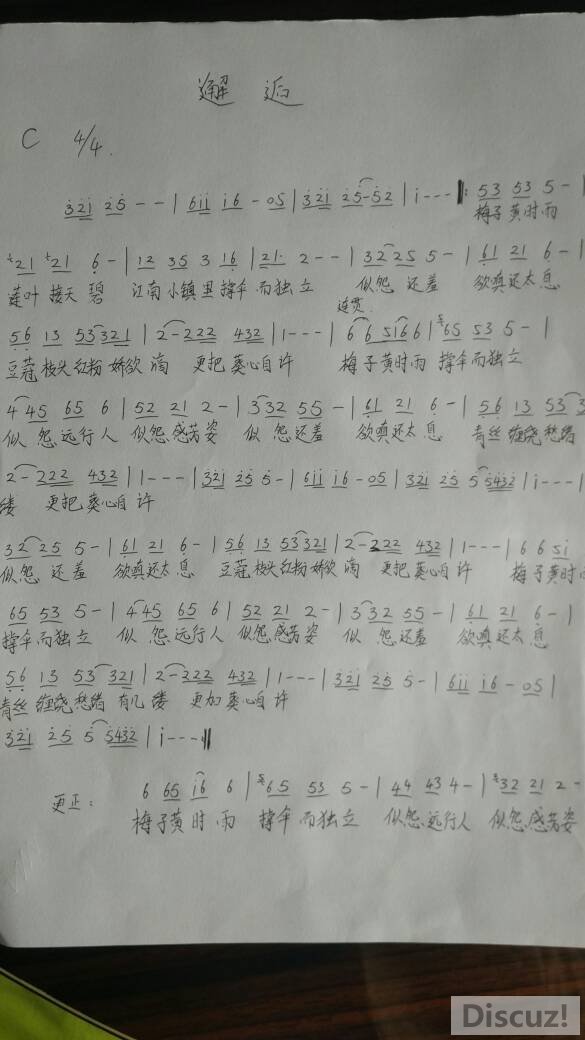 邂 逅
C 4/4.
321 25 - - | 6i i i6 - 05 | 321 25-52 | i - - - ‖: 53 53 5 - |
梅子黄时雨
21 21 6 - | 12 35 3 16 | 21· 2 - - | 32 25 5 - | 61 21 6 - |
莲叶接天碧 江南小镇里撑伞而独立 似怨还羞 欲嗔还太息
连贯.
56 13 53 321 | 2-222 432 | 1 - - - | 6 6 5i6 6 | 65 53 5 - |
豆蔻枝头红粉娇欲滴 更把葵心自许 梅子黄时雨 撑伞而独立
4 45 65 6 | 52 21 2 - | 3 32 55 - | 61 21 6 - | 56 13 53 3
似怨远行人 似怨感芳姿 似怨还羞 欲嗔还太息 青丝缠绕愁绪
2-222 432 | 1 - - - | 321 25 5 - | 6i i i6 - 05 | 321 25 5 5432 | i - - - |
缕 更把葵心自许
32 25 5 - | 61 21 6 - | 56 13 53 321 | 2-222 432 | 1 - - - | 6 6 5i
似怨还羞 欲嗔还太息 豆蔻枝头红粉娇欲滴 更把葵心自许 梅子黄时
65 53 5 - | 4 45 65 6 | 52 21 2 - | 3 32 55 - | 61 21 6 - |
撑伞而独立 似怨远行人 似怨感芳姿 似怨还羞 欲嗔还太息
56 13 53 321 | 2-222 432 | 1 - - - | 321 25 5 - | 6i i i6 - 05 |
青丝缠绕愁绪有几缕 更加葵心自许
321 25 5 5432 | i - - - ‖
更正: 6 65 i6 6 | 65 53 5 - | 44 43 4 - | 32 21 2 -
梅子黄时雨 撑伞而独立 似怨远行人 似怨感芳姿
Discuz!